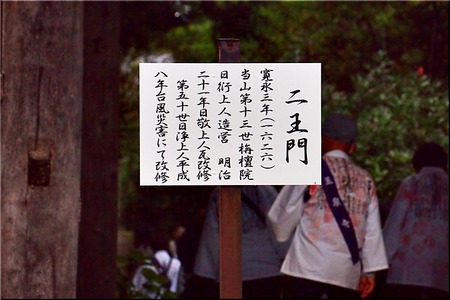 二王門
寛永三年(一六二六)
当山第十三世梅檀院
日衍上人造営 明治
二十一年日敬上人瓦改修
第五十世日浄上人平成
八年台風災害にて改修